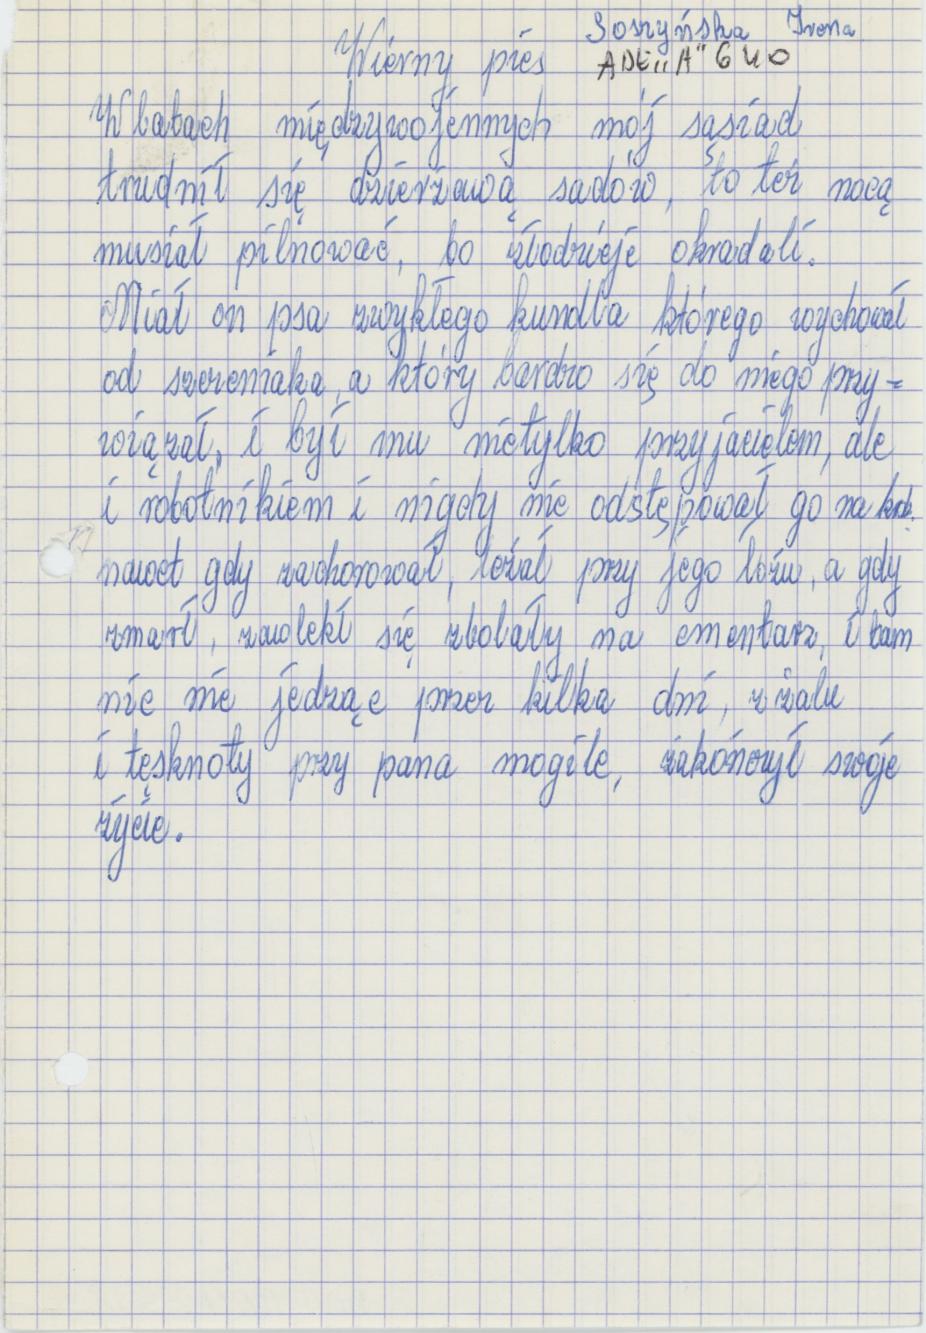 Soszyńska Irena
Wierny pies ADE „A” 640
W latach międzywojennych mój sąsiad
trudnił się dzierżawą sadów, to też nocą
musiał pilnować, bo złodzieje okradali.
Miał on psa zwykłego kundla którego wychował
od szczeniaka, a który bardzo się do niego przy=
wiązał, i był mu nietylko przyjacielem, ale
i robotnikiem i nigdy nie odstępował go na krok.
nawet gdy zachorował, leżał przy jego łożu, a gdy
zmarł, zwolekł się zbolały na cmentarz, i tam
nic nie jedząc przez kilka dni, z żalu
i tęsknoty przy pana mogile, zakończył swoje
życie.